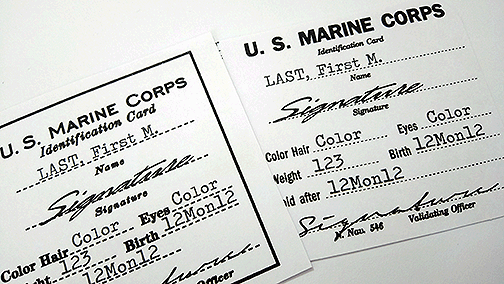 U. S. MARINE CORPS
Identification Card
LAST, First M.
Name
Signature
Signature
Color Hair Color Eyes Color
123 Birth 12Mon12
12Mon12
Officer
U. S. MARINE CORPS
Identification Card
LAST, First M.
Name
Signature
Signature
Color Hair Color Eyes Color
Weight 123 Birth 12Mon12
after 12Mon12
Signature
Validating Officer
Nav. 546